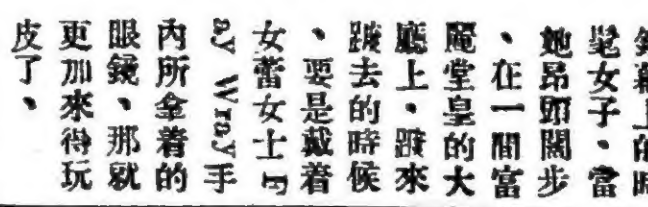 幕上的時
髦女子、當
她昂頭闊步
、在一間富
麗堂皇的大
廳上、踱來
踱去的時候
、要是戴着
女蕾女士F
ay Wray手
內所拿着的
眼鏡、那就
更加來得玩
皮了、